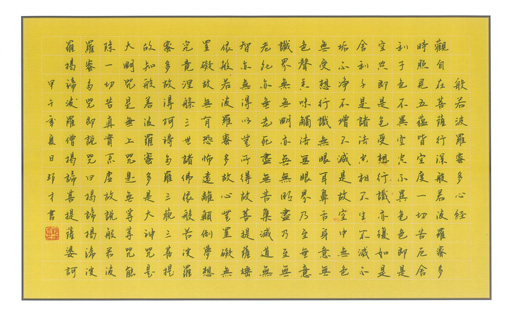 般若波羅蜜多心經
觀自在菩薩行深般若波羅蜜多
時照見五蘊皆空度一切苦厄舍
利子色不異空空不異色色即是
空空即是色受想行識亦復如是
舍利子是諸法空相不生不滅不
垢不淨不增不減是故空中無色
無受想行識無眼耳鼻舌身意無
色聲香味觸法無眼界乃至無意
識界無無明亦無無明盡乃至無
老死亦無老死盡無苦集滅道無
智亦無得以無所得故菩提薩埵
依般若波羅蜜多故心無罣礙無
罣礙故無有恐怖遠離顛倒夢想
究竟涅槃三世諸佛依般若波羅
蜜多故得阿耨多羅三藐三菩提
故知般若波羅蜜多是大神咒是
大明咒是無上咒是無等等咒能
除一切苦真實不虛故說般若波
羅蜜多咒即說咒曰揭諦揭諦波
羅揭諦波羅僧揭諦菩提薩婆訶
甲午年夏日才書